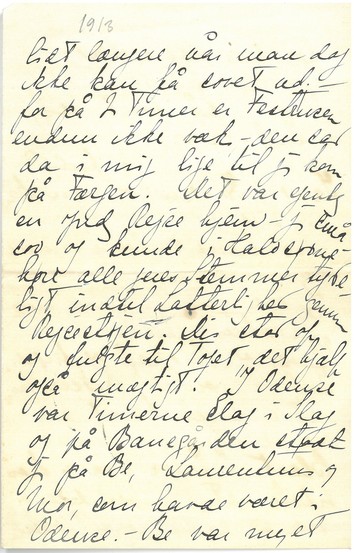 1913
lidt længere når man dog
ikke kan få sovet ud. -
for på 2 Timer er Festrusen
endnu ikke væk - den sad
da i mig lige til jeg kom
på Færgen. Det var egentlig
en god Rejse hjem - jeg små
sov og kunde i Halvsøvne
høre alle jeres Stemmer tyde
ligt indtil Latterlighed gennem
Rejsestøjen. Dis stod op
og fulgte til Toget, det hjalp
også mægtigt. I Odense
var Timerne Slag i Slag
og på Banegården stødt
jeg på Be, Laurentius og
Mor, som havde været i
Odense. - Be var meget